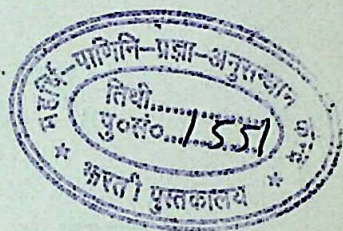 महर्षि-पाणिनि-प्रज्ञा-अनुसन्धान
तिथी..........
पु०सं०...1551
* भारती पुस्तकालय *